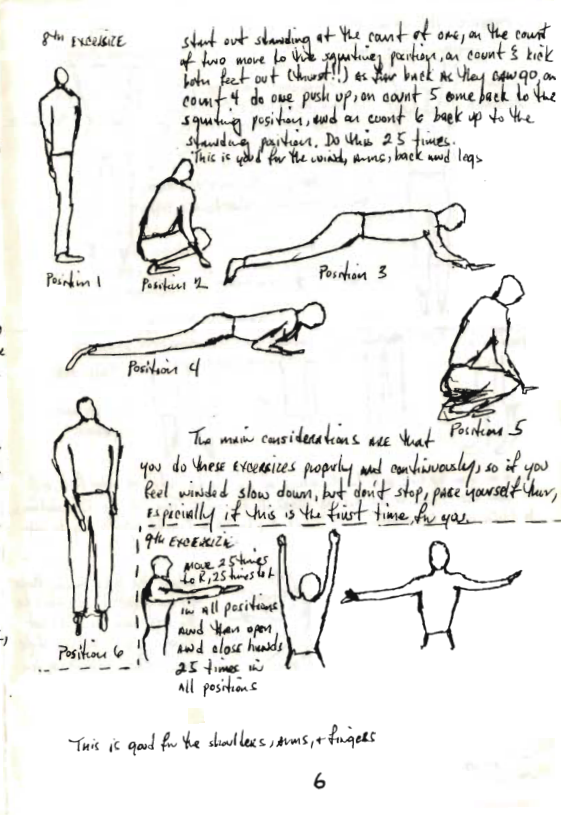 8th EXCERSIZE
start out standing at the count of one, on the count
of two move to the squating position, on count 3 kick
both feet out (thrust!!) as far back as they can go, on
count 4 do one push up, on count 5 come back to the
squating position, and on count 6 back up to the
standing position. Do this 25 times.
This is good for the wind, arms, back and legs
Position 1
Position 2
Position 3
Position 4
Position 5
The main considerations are that
you do these EXCERSIZES properly and continuously, so if you
feel winded slow down, but don't stop, pace yourself thru,
Especially if this is the first time for you.
Position 6
9th EXCERSIZE
move 25 times
to R, 25 times left
in all positions
and then open
and close hands
25 times in
all positions
This is good for the shoulders, arms, + fingers
6